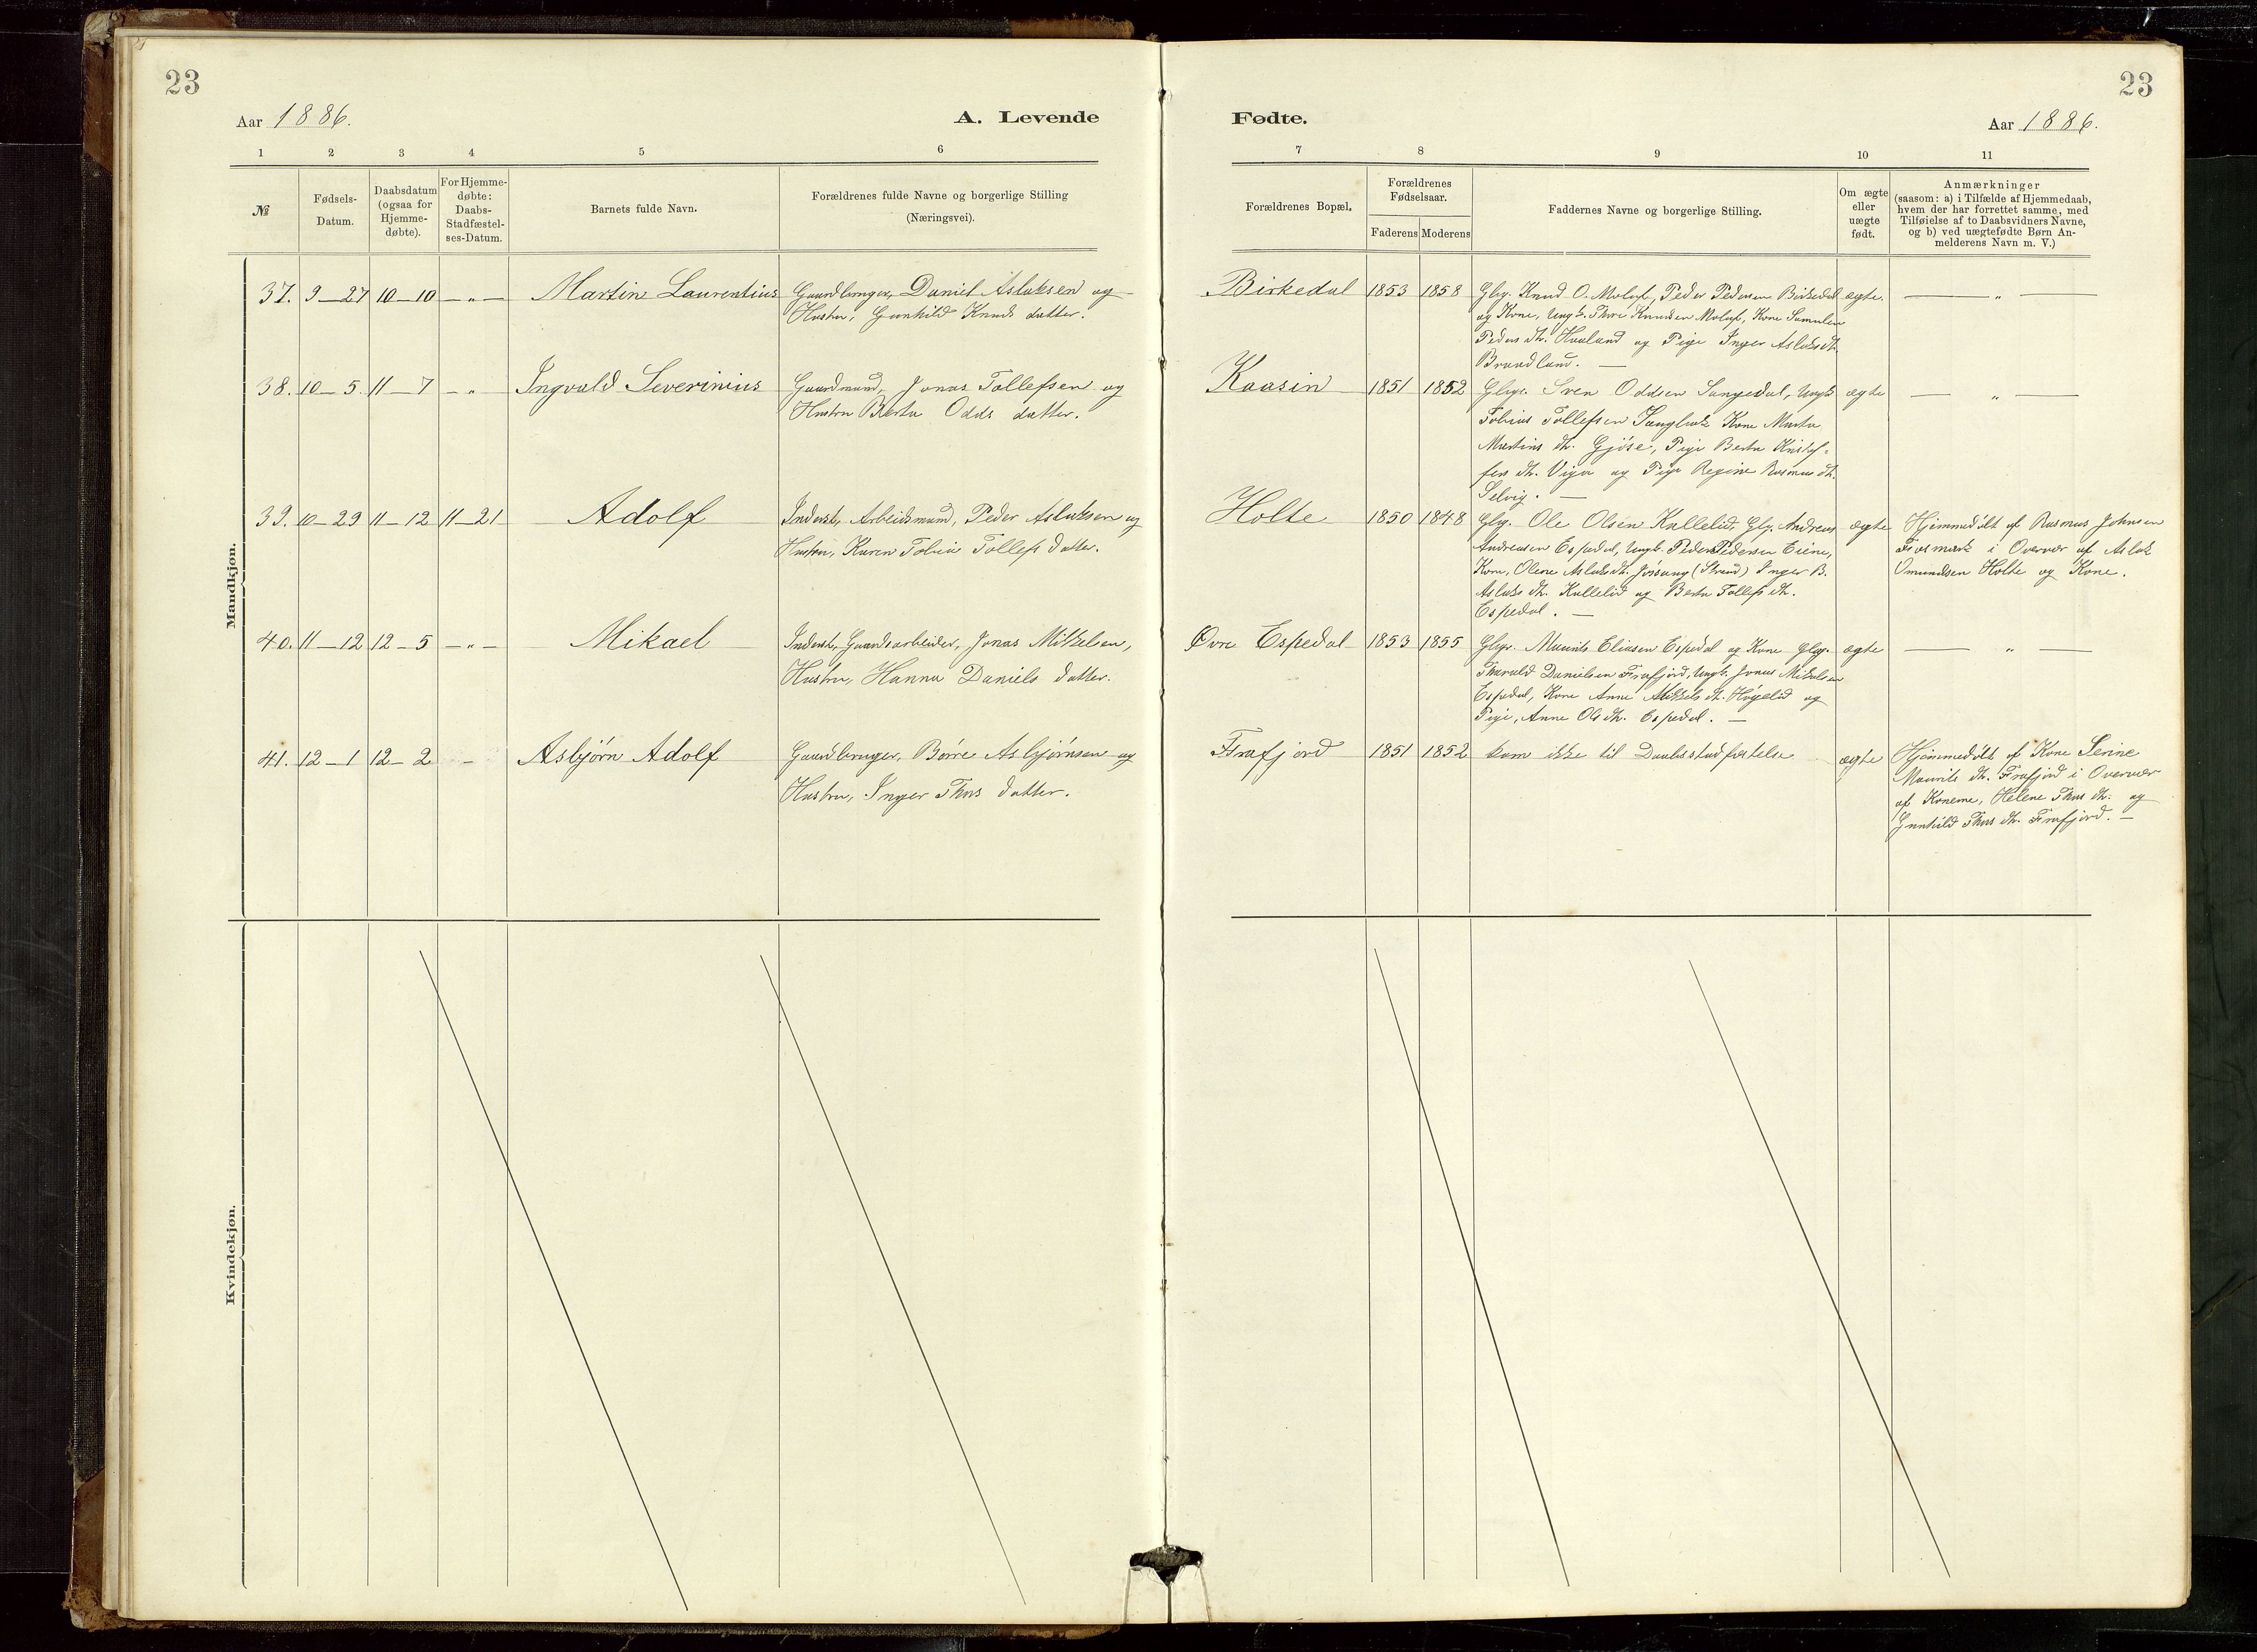 23
Aar 1886.
A. Levende
1 2 3 4 5 6
№
Fødsels-
Datum.
Daabsdatum
(ogsaa for
Hjemme-
døbte).
For Hjemme-
døbte:
Daabs-
Stadfæstel-
ses-Datum.
Barnets fulde Navn.
Forældrenes fulde Navne og borgerlige Stilling
(Næringsvei).
Mandkjøn.
37. 9-27 10-10 -„- Martin Laurentius Gaardbruger, Daniel Aslaksen og
Hustru, Gunhild Knuds datter.
38. 10-5. 11-7 -„ Ingvald Severinius Gaardmand, Jonas Tollefsen og
Hustru Berta Odds datter.
39. 10-29 11-12 11-21 Adolf Inderst, Arbeidsmand, Peder Aslaksen og
Hustru, Karen Tobia Tollefs datter.
40. 11-12 12-5 -„- Mikael Inderst, Gaardsarbeider, Jonas Mikkelsen,
Hustru, Hanna Daniels datter.
41. 12-1 12-2 - Asbjørn Adolf Gaardbruger, Børre Asbjørnsen og
Hustru, Inger Thors datter.
Kvindekjøn.
23
Fødte.
Aar 1886.
7 8 9 10 11
Forældrenes Bopæl.
Forældrenes
Fødselsaar.
Faderens Moderens
Faddernes Navne og borgerlige Stilling.
Om ægte
eller
uægte
født.
Anmærkninger
(saasom: a) i Tilfælde af Hjemmedaab,
hvem der har forrettet samme, med
Tilføielse af to Daabsvidners Navne,
og b) ved uægtefødte Børn An-
melderens Navn m. V.)
Birkedal 1853 1858 Gbg. Knud O. Molaf, Peder Pedersen Birkedal ægte. — „ —
og Kone, Ungk. Thore Knudsen Molaf, Kone Samuline
Peders dt. Haaland og Pige Inger Aslaks dt.
Brandland. —
Kaasin 1851 1852 Gbgr. Sven Oddsen Sangedal, Ungk. ægte — „ —
Tobias Tollefsen Kone Marta
Martins dt. Gjöse, Pige Berta
fers dt. Viga og Pige Regine Rasmus dt.
Selvig. —
Holte 1850 1848 Gbg. Ole Olsen Kallelid, Gbg. Andreas ægte Hjemmedöbt af Rasmus Johnsen
Andreasen Espedal, Ungk. Peder Pedersen Eiene, Fosmark i Overvær af Aslak
Kone, Olene Aslaks dt. Jössang (Strand) Inger B. Omundsen Holte og Kone.
Aslaks dt. Kallelid og Berta Tollefs dt.
Espedal. —
Øvre Espedal 1853 1855 Gbgr. Maurits Eliasen Espedal og Kone Gbg. ægte — „ —
Tharald Danielsen Frafjord, Ungk. Jonas Mikalsen
Espedal, Kone Anne Mikkels dt. Högelid og
Pige, Anne Ols dt. Espedal. —
Frafjord 1851 1852 kom ikke til Daabsstadfæstelse ægte Hjemmedöbt af Kone Serine
Maurits dt. Frafjord i Overvær
af Konerne, Helene Thors dt. og
Gunhild Thors dt. Frafjord. —